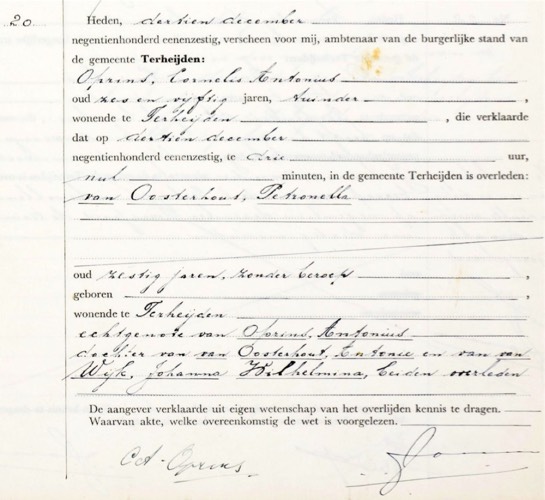 20
Heden, dertien december
negentienhonderd eenenzestig, verscheen voor mij, ambtenaar van de burgerlijke stand van
de gemeente Terheijden:
Oprins, Cornelis Antonius
oud zes en vijftig jaren, tuinder ,
wonende te Terheijden , die verklaarde
dat op dertien december
negentienhonderd eenenzestig, te drie uur,
nul minuten, in de gemeente Terheijden is overleden:
van Oosterhout, Petronella
oud zestig jaren, zonder beroep ,
geboren ,
wonende te Terheijden
echtgenote van Oprins, Antonius
dochter van van Oosterhout, Antonie en van van
Wijk, Johanna Wilhelmina, beiden overleden
De aangever verklaarde uit eigen wetenschap van het overlijden kennis te dragen.
Waarvan akte, welke overeenkomstig de wet is voorgelezen.
C A Oprins